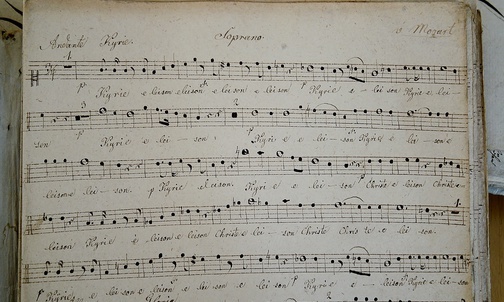 Andante Kyrie. Soprano. Mozart
1
p Kyrie eleison eleison e leison e leison p Kyrie e – lei son Kyrie e lei –
3 2
son p Kyrie e – lei – son. p Kyri e e lei – son Kyrie e lei – son e
4
leison e lei – son. p Kyrie eleison. Kyri e e lei – son Christe e leison Christe e –
1
leison Kyrie e leison e leison Christe e lei – son Christe Chris te e lei son.
Kyrie e lei son e leison e lei son e lei son p Kyrie e – leison Kyrie e lei –
Gloria 2